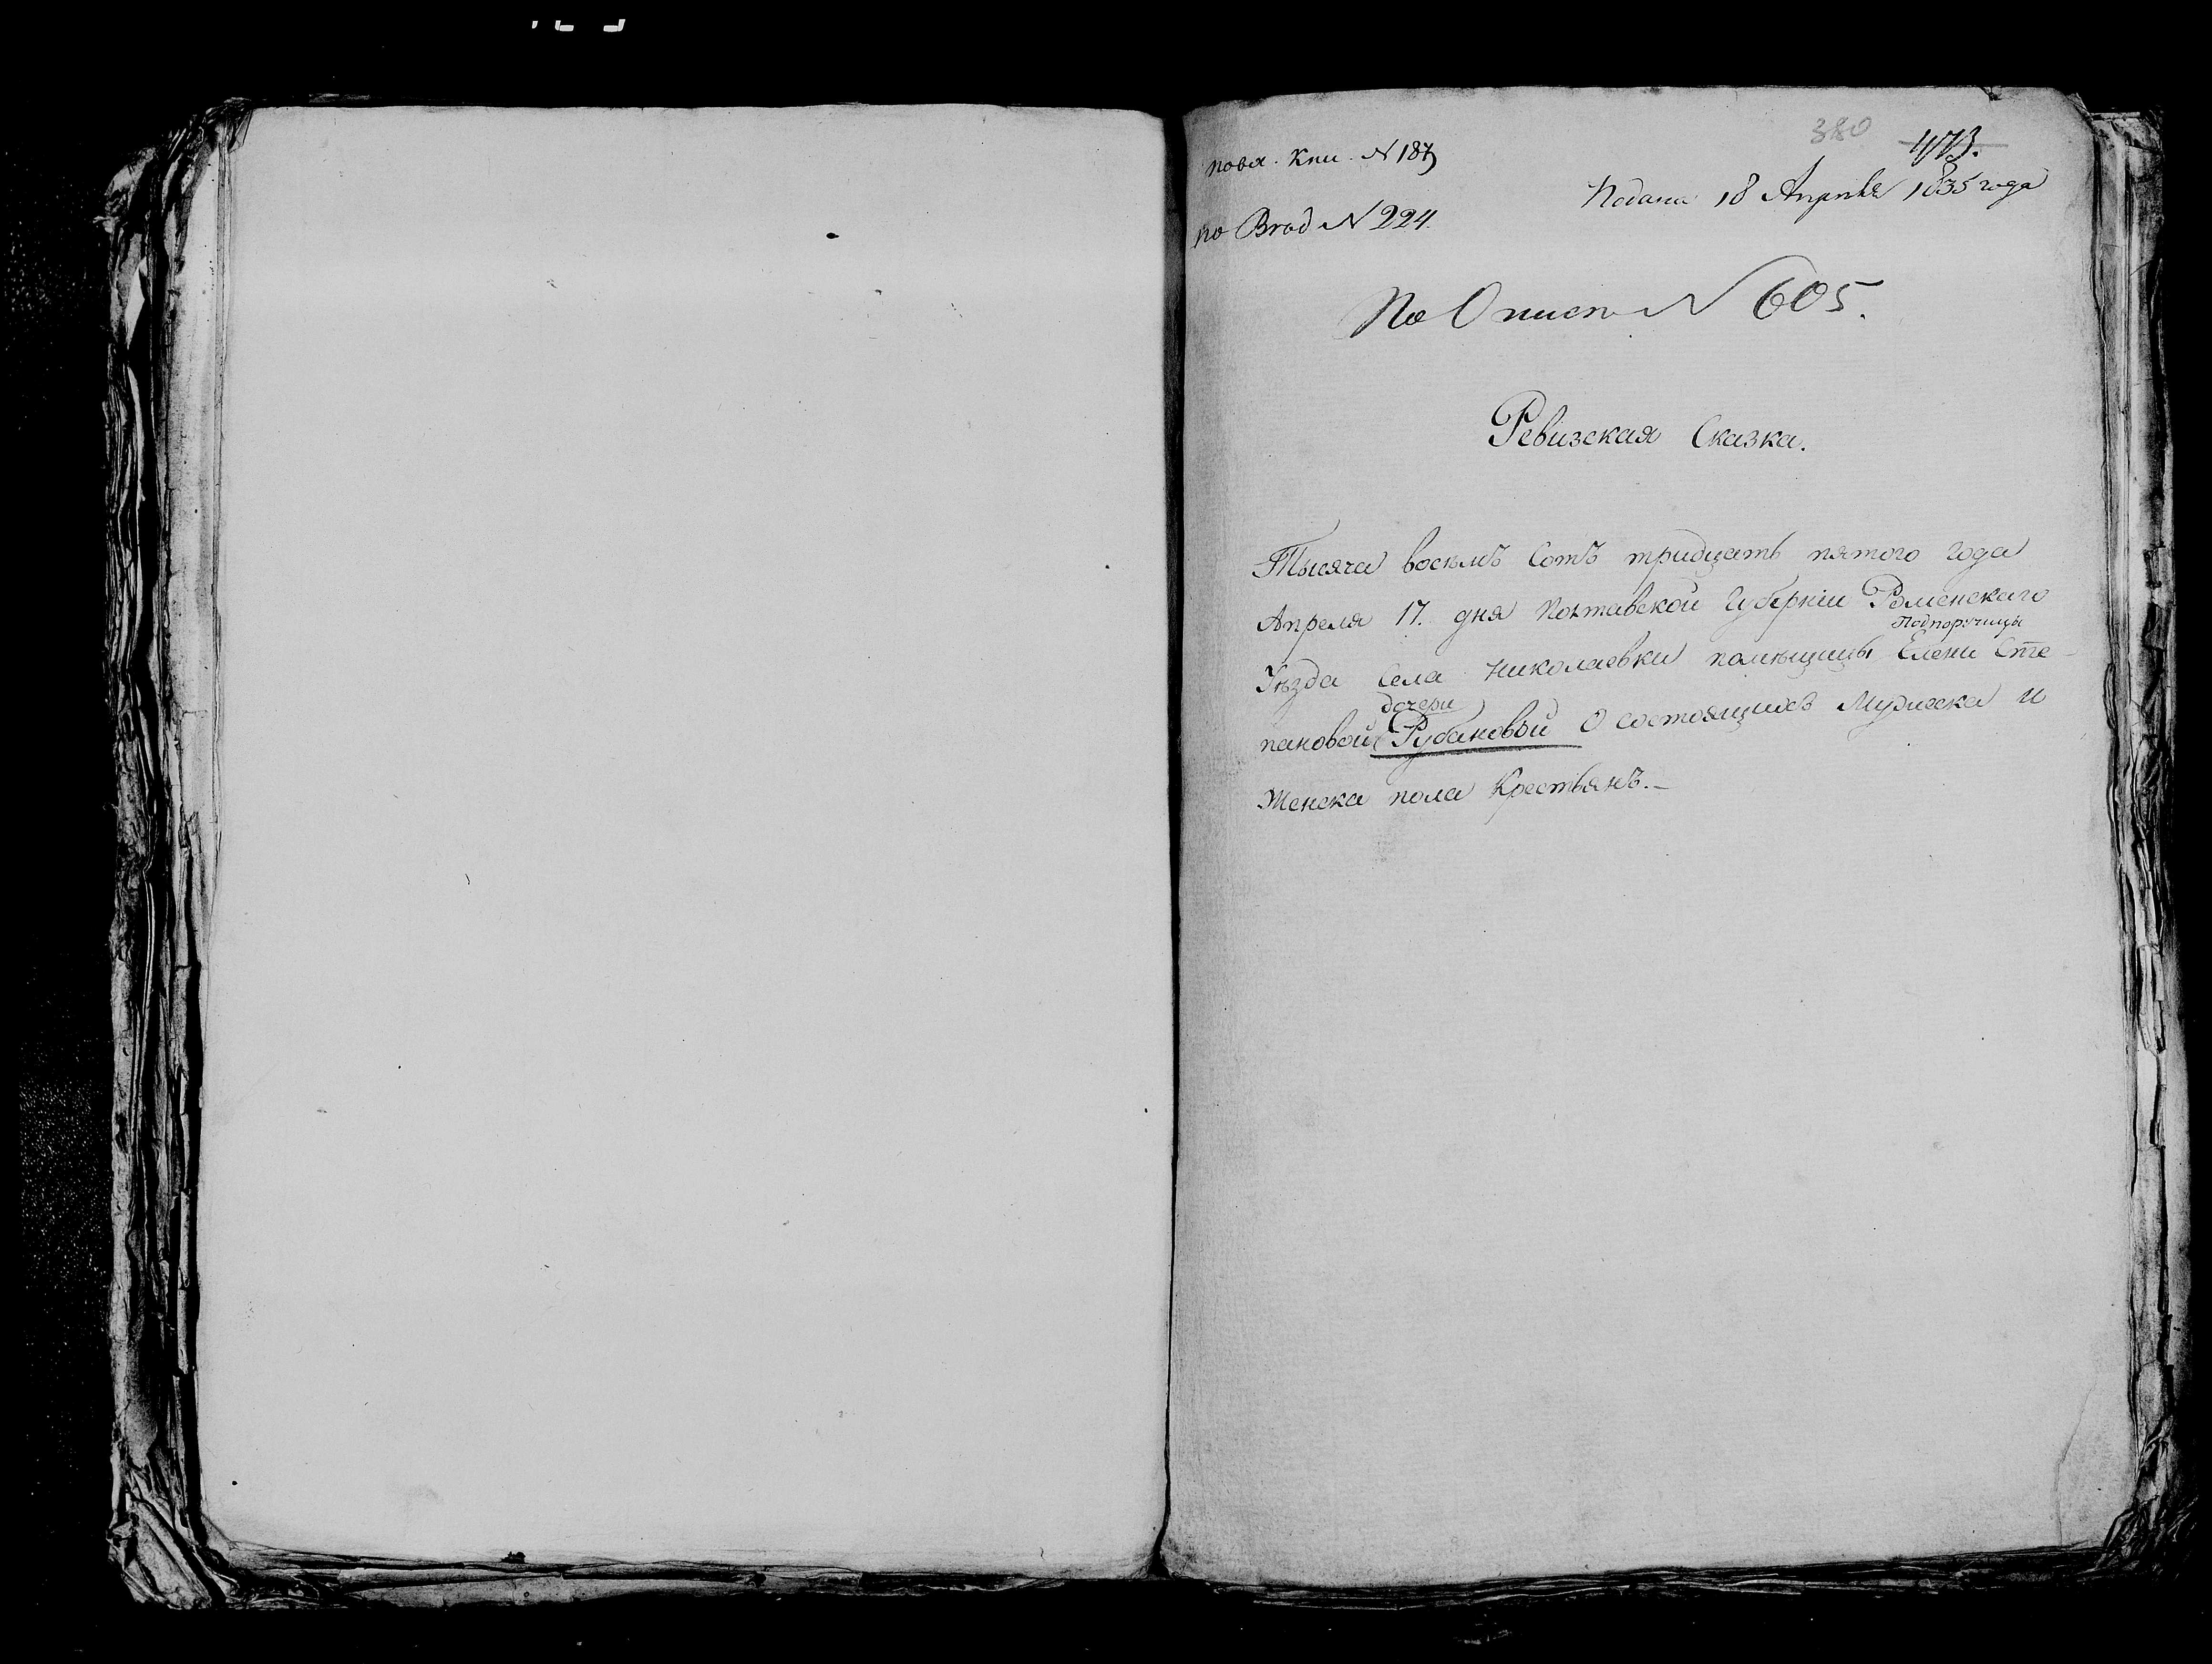 380
473.
повя. Кни. № 187
Подана 18 Апреля 1835 года
по Вход № 224.
По Опис № 605.
Ревизская Сказка.
Тысяча восемъ Сотъ тридцать пятого года
Апреля 17. дня Полтавской Губерніи Роменскаго
Подпоручицы
Уѣзда Села Николаевки помѣщицы Елени Сте-
дочери
пановой Рубановой О состоящихъ Мужеска и
Женска пола Крестьянъ.-